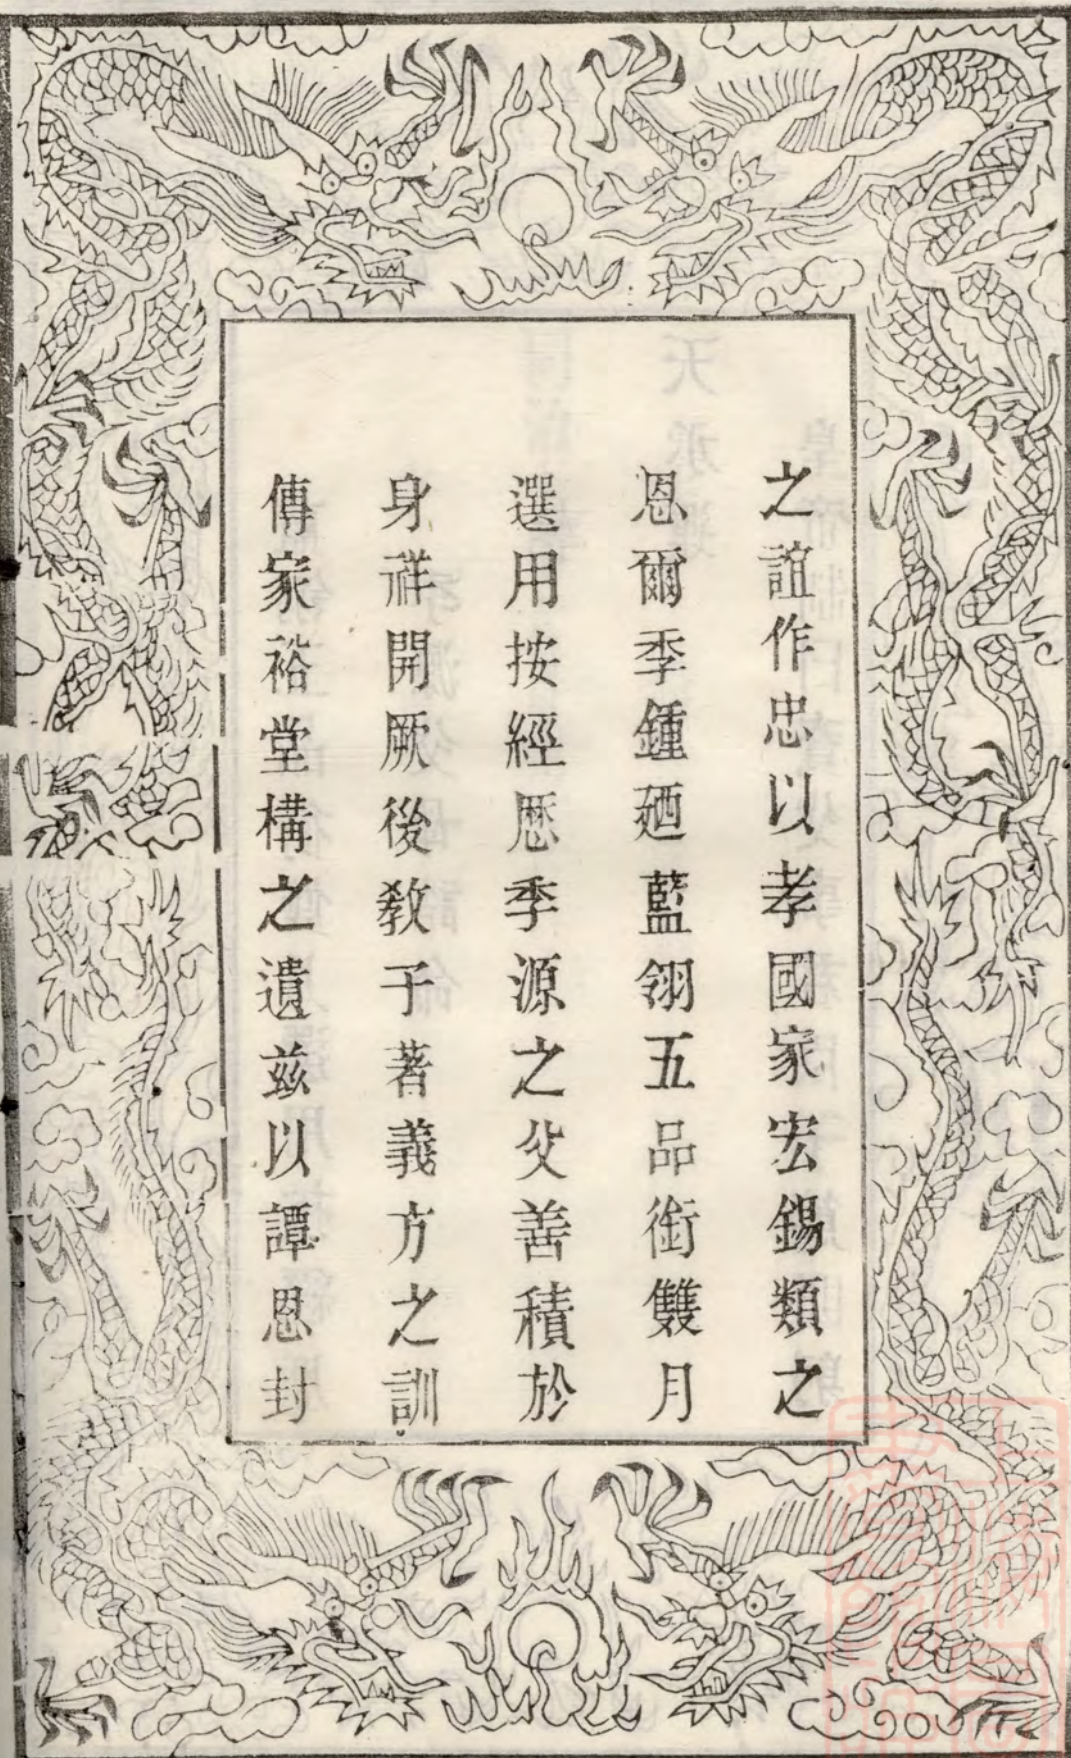 之誼作忠以孝國家宏錫類之
恩爾季鍾廼藍翎五品銜雙月
選用按經歷季源之父善積於
身祥開厥後敎子著義方之訓
傳家裕堂構之遺兹以譚恩封